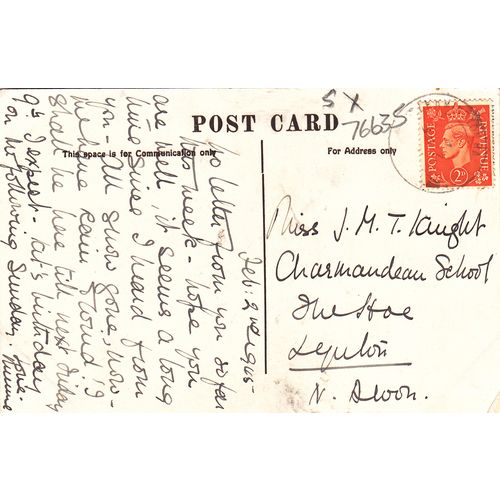 S X
76635
POST CARD
This space is for Communication only
For Address only
POSTAGE
REVENUE
2D
Miss J. M. T. Knight
Charmandean School
The Hoe
Lynton
N. Devon.
Feb. 2nd 1945
No letter from you so far
this week - hope you
are well, it seems a long
time since I heard from
you - All snow gone, now -
here rain & wind. I
shall be here till next Friday
9th I expect - Pat's birthday
on the following Sunday love -